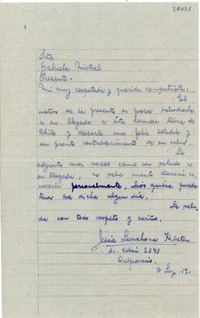 Srta.
Gabriela Mistral
Presente.
Mi muy respetada y querida compatriota:
El
motivo de la presente es para saludarla
a su llegada a esta hermosa tierra de
Chile y desearle una feliz estadía y
un pronto restablecimiento de su salud.
Le
adjunto unos versos como un saludo a
su llegada, no sabe cuanto desearía co-
nocerla personalmente, Dios quiera pueda
tener esa dicha algún día.
La salu-
da con todo respeto y cariño,
Valparaíso.
7 Sep.